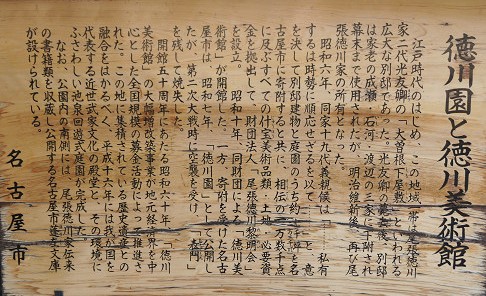 徳川園と徳川美術館
江戸時代のはじめ、この地域一帯は尾張徳川
家二代光友卿の「大曽根下屋敷」といわれる
広大な別邸であった。光友卿の薨去後、別邸
は家老の成瀬、石河、渡辺の三家に下附され
幕末まで使用されたが、明治維新後、再び尾
張徳川家の所有となった。
昭和六年、同家十九代義親候は「……私有
するは時勢に順応せざるを以て……」と、意
を決して別邸建物と庭園のうち約一万坪を名
古屋市に寄附すると共に、相伝の一万数千点
に及ぶすべての什宝美術品類・土地・必要資
金を拠出して、財団法人「尾張徳川黎明会」
を設立。昭和十年、同財団による「徳川美
術館」が開館した。一方、寄附を受けた名古
屋市は、昭和七年、「徳川園」として公開し
たが、第二次大戦時に空襲を受け、表門
を残して焼失した。
開館五十周年にあたる昭和六十年、「徳川
美術館」の大幅増改築事業が地元経済界を中
心とした全国規模の募金活動によって推進さ
れた。この地に集積されている歴史遺産との
融合をはかるべく、平成十六年には我が国を
代表する近世武家文化の殿堂と、その環境に
ふさわしい池泉回遊式庭園が完成した。
なお、公園内の南側には、尾張徳川家伝来
の書籍類を収蔵・公開する名古屋市蓬左文庫
が設けられている。
名古屋市